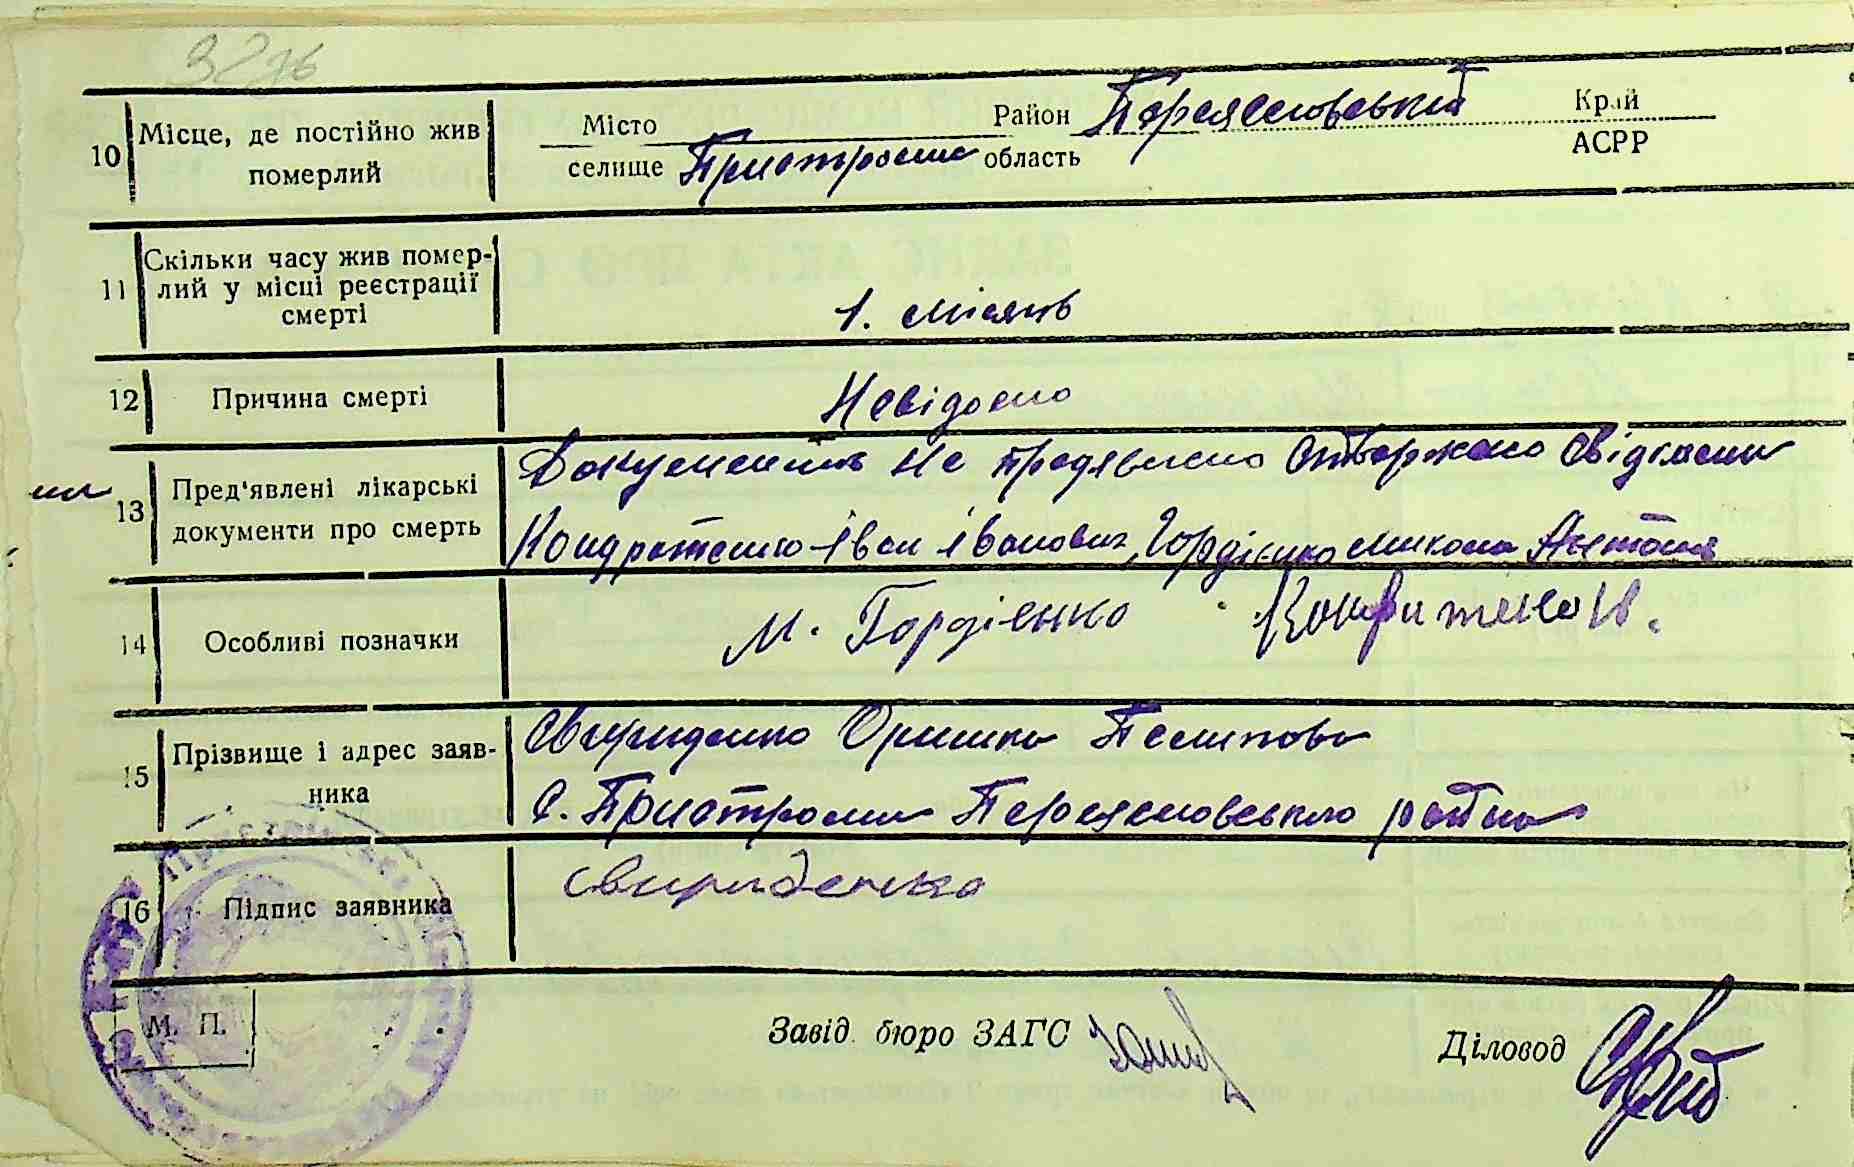 10 Місце, де постійно жив померлий
Місто селище Пристроми Район область Переяславський Край АСРР
11 Скільки часу жив помер-
лий у місці реєстрації
смерті
1. місяць
12 Причина смерті Невідомо
13 Пред'явлені лікарські
документи про смерть
Документів не предявлено стверджено свідками
Кондратенко Іван Іванович, Гордієнко Микола Антонів
14 Особливі позначки
М. Гордієнко Кондратенко И.
15 Прізвище і адрес заяв-
ника
Свириденко Оришка Пелипова
С. Пристроми Переяславського района
16 Підпис заявника Свириденко
М. П. Завід. бюро ЗАГС Діловод